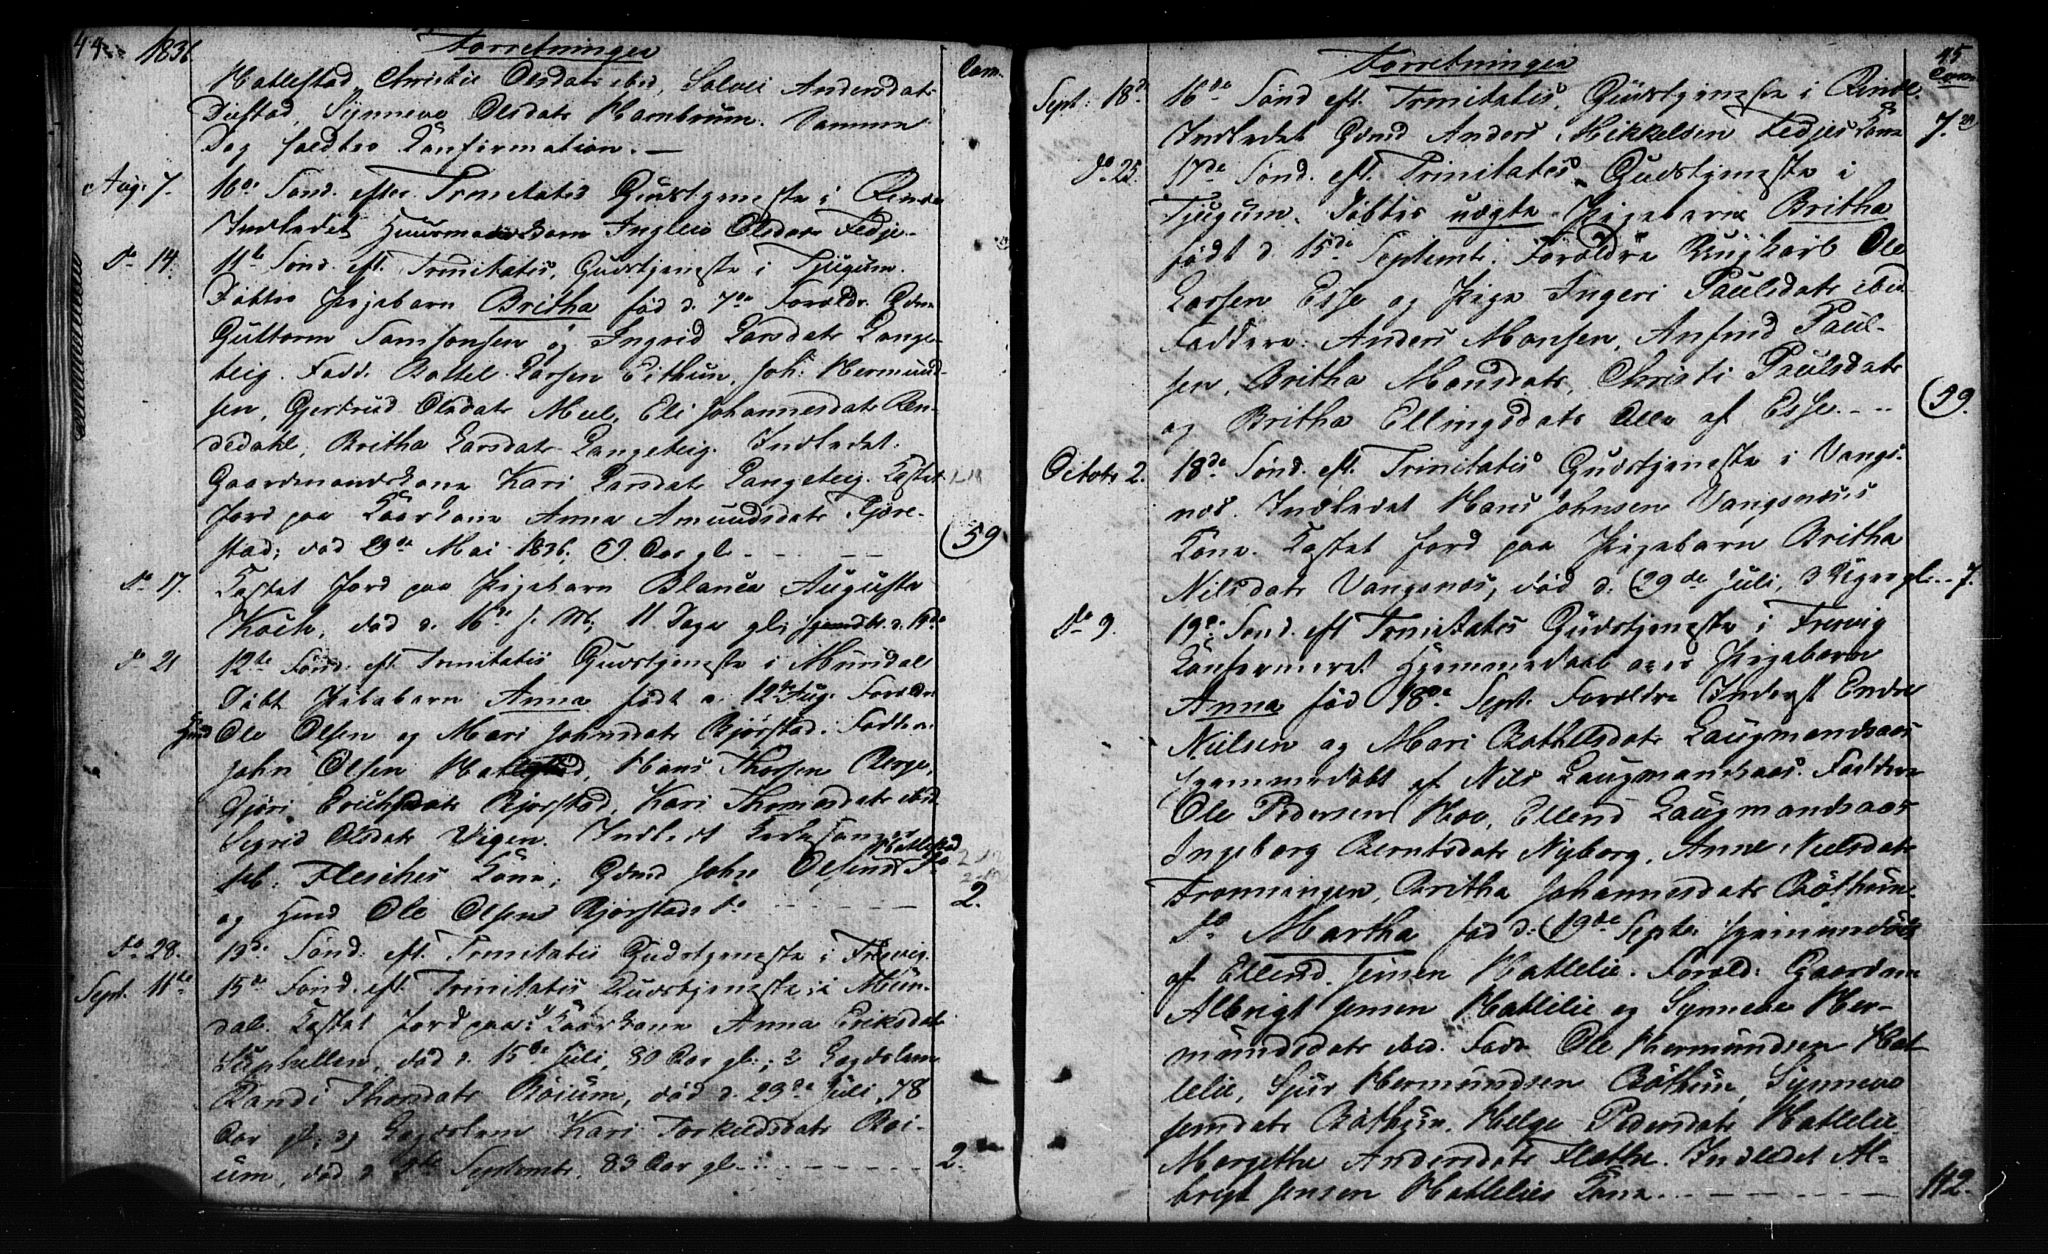 44 1836 Forretninger Com.
Hatlestad, Christie Olsdatr ibid, Solvei Andersdatr
Distad, Synneva Olsdatr Hambrum. Samme
Dag holdtes Confirmation. —
Aug. 7. 10de Sønd. efter Trinitatis Gudstjeneste i Rinde
Indledet Huusmands Kone Ingleiv Olsdatr Fedje
Do 14. 11te Sønd. eft. Trinitatis, Gudstjeneste i Tjugum.
Døbtes Pigebarn Britha fød d. 7de Forældr. Gdm.
Guttorm Samsonsen og Ingrid Larsdatr Lange-
teig. Fadd. Bottel Larsen Eithun, Joh: Hermund-
sen, Gjertrud Olsdatr Meel, Eli Johannesdatr Ren-
dedahl, Britha Larsdatr Langeteig. Indledet:
Gaardmandskone Kari Larsdatr Langeteig. Kastet
Jord paa Kaarkone Anna Amundsdatr Fjøre-
stad, død 29de Mai 1836, Aar gl. - - - 59
Do 17. Kastet Jord paa Pigebarn Blanca Augusta
Koch, død d. 16de s. M., 11 Dage gl.
Do 21 12te Sønd. eft. Trinitatis Gudstjeneste i Mundal
Døbt Pigebarn Anna født d. 12te Aug. Forældre
Hmd Ole Olsen og Mari Johnsdatr Bjørstad. Faddere
John Olsen Hatlestad, Hans Thorsen Berge,
Gjøri Erichsdatr Bjørstad, Kari Thomasdatr ibid
Sigrid Olsdatr Vigen. Indledt
Fleiches Kone, Gdmd John Olsens Hatlestad Do
og Hmd Ole Olsens Bjørstads Do - - - - 2.
Do 28. 13de Sønd. eft. Trinitatis Gudstjeneste i Fresvig
Sept. 11te 15de Sønd. eft. Trinitatis Gudstjeneste i Mun-
dal. Kastet Jord paa Kaarkone Anna Eriksdatr
Suphellen, død d. 15de Juli, 80 Aar gl.; 2 Lægdslem
Randi Thorsdatr Bøium, død d. 23de Juli, 78
Aar gl. og Lægdslem Kari Torkildsdatr Bøi-
um, død d. Septembr. 83 Aar gl. - - - - 2.
Forretninger 45
Com.
Sept: 18de 16de Sønd eft. Trinitatis, Gudstjeneste i Rinde.
Indledet Gdmd Anders Mikkelsen Fedjes Kone 7.
Do 25. 17de Sønd. eft. Trinitatis Gudstjeneste i
Tjugum. Døbtes uægte Pigebarn Britha
født d. 15de Septembr: Forældre Ungkarl Ole
Larsen Esse og Pige Ingeri Paulsdatr ibid.
Faddere: Anders Monsen, Anfind Paul-
sen, Britha Monsdatr, Christi Paulsdatr
og Britha Ellingsdatr Alle af Esse. - - 59.
Octobr 2. 18de Sønd. eft. Trinitatis Gudstjeneste i Vangs-
nes. Indledet Hans Johnsen Vangsnæs
Kone. Kastet Jord paa Pigebarn Britha
Nilsdatr Vangsnæs, død d. 29de Juli, 3 Uger gl. - 7.
Do 9. 19de Sønd. eft Trinitatis Gudstjeneste i Fresvig
Confirmeret Hjemmedaab over Pigebarn
Anna fød 18de Sept. Forældre Inderst Endre
Nielsen og Mari Bothelsdatr Laugmandsaas
hjemmedøbt af Nils Laugmandsaas. Faddere
Ole Pedersen Hov, Ellend Laugmandsaas
Ingeborg Berntsdatr Nyborg, Anne Nielsdatr
Fronningen, Britha Johannesdatr Bøthun.
Do Martha fød d: 19de Septr hjemmedøbt
af Ellend Jensen Hatlelie. Foræld: Gaardm
Albrigt Jensen Hatlelie og Synneva Her-
mundsdatr ibid. Fadd Ole Hermundsen Hat
lelie, Sjur Hermundsen Bøthun, Synneva
Jensdatr Bøthun, Helge Pedersdatr Hatlelie
Margethe Andersdatr Flathe. Indledet Al-
brigt Jensen Hatlelies Kone. - - - - 112.